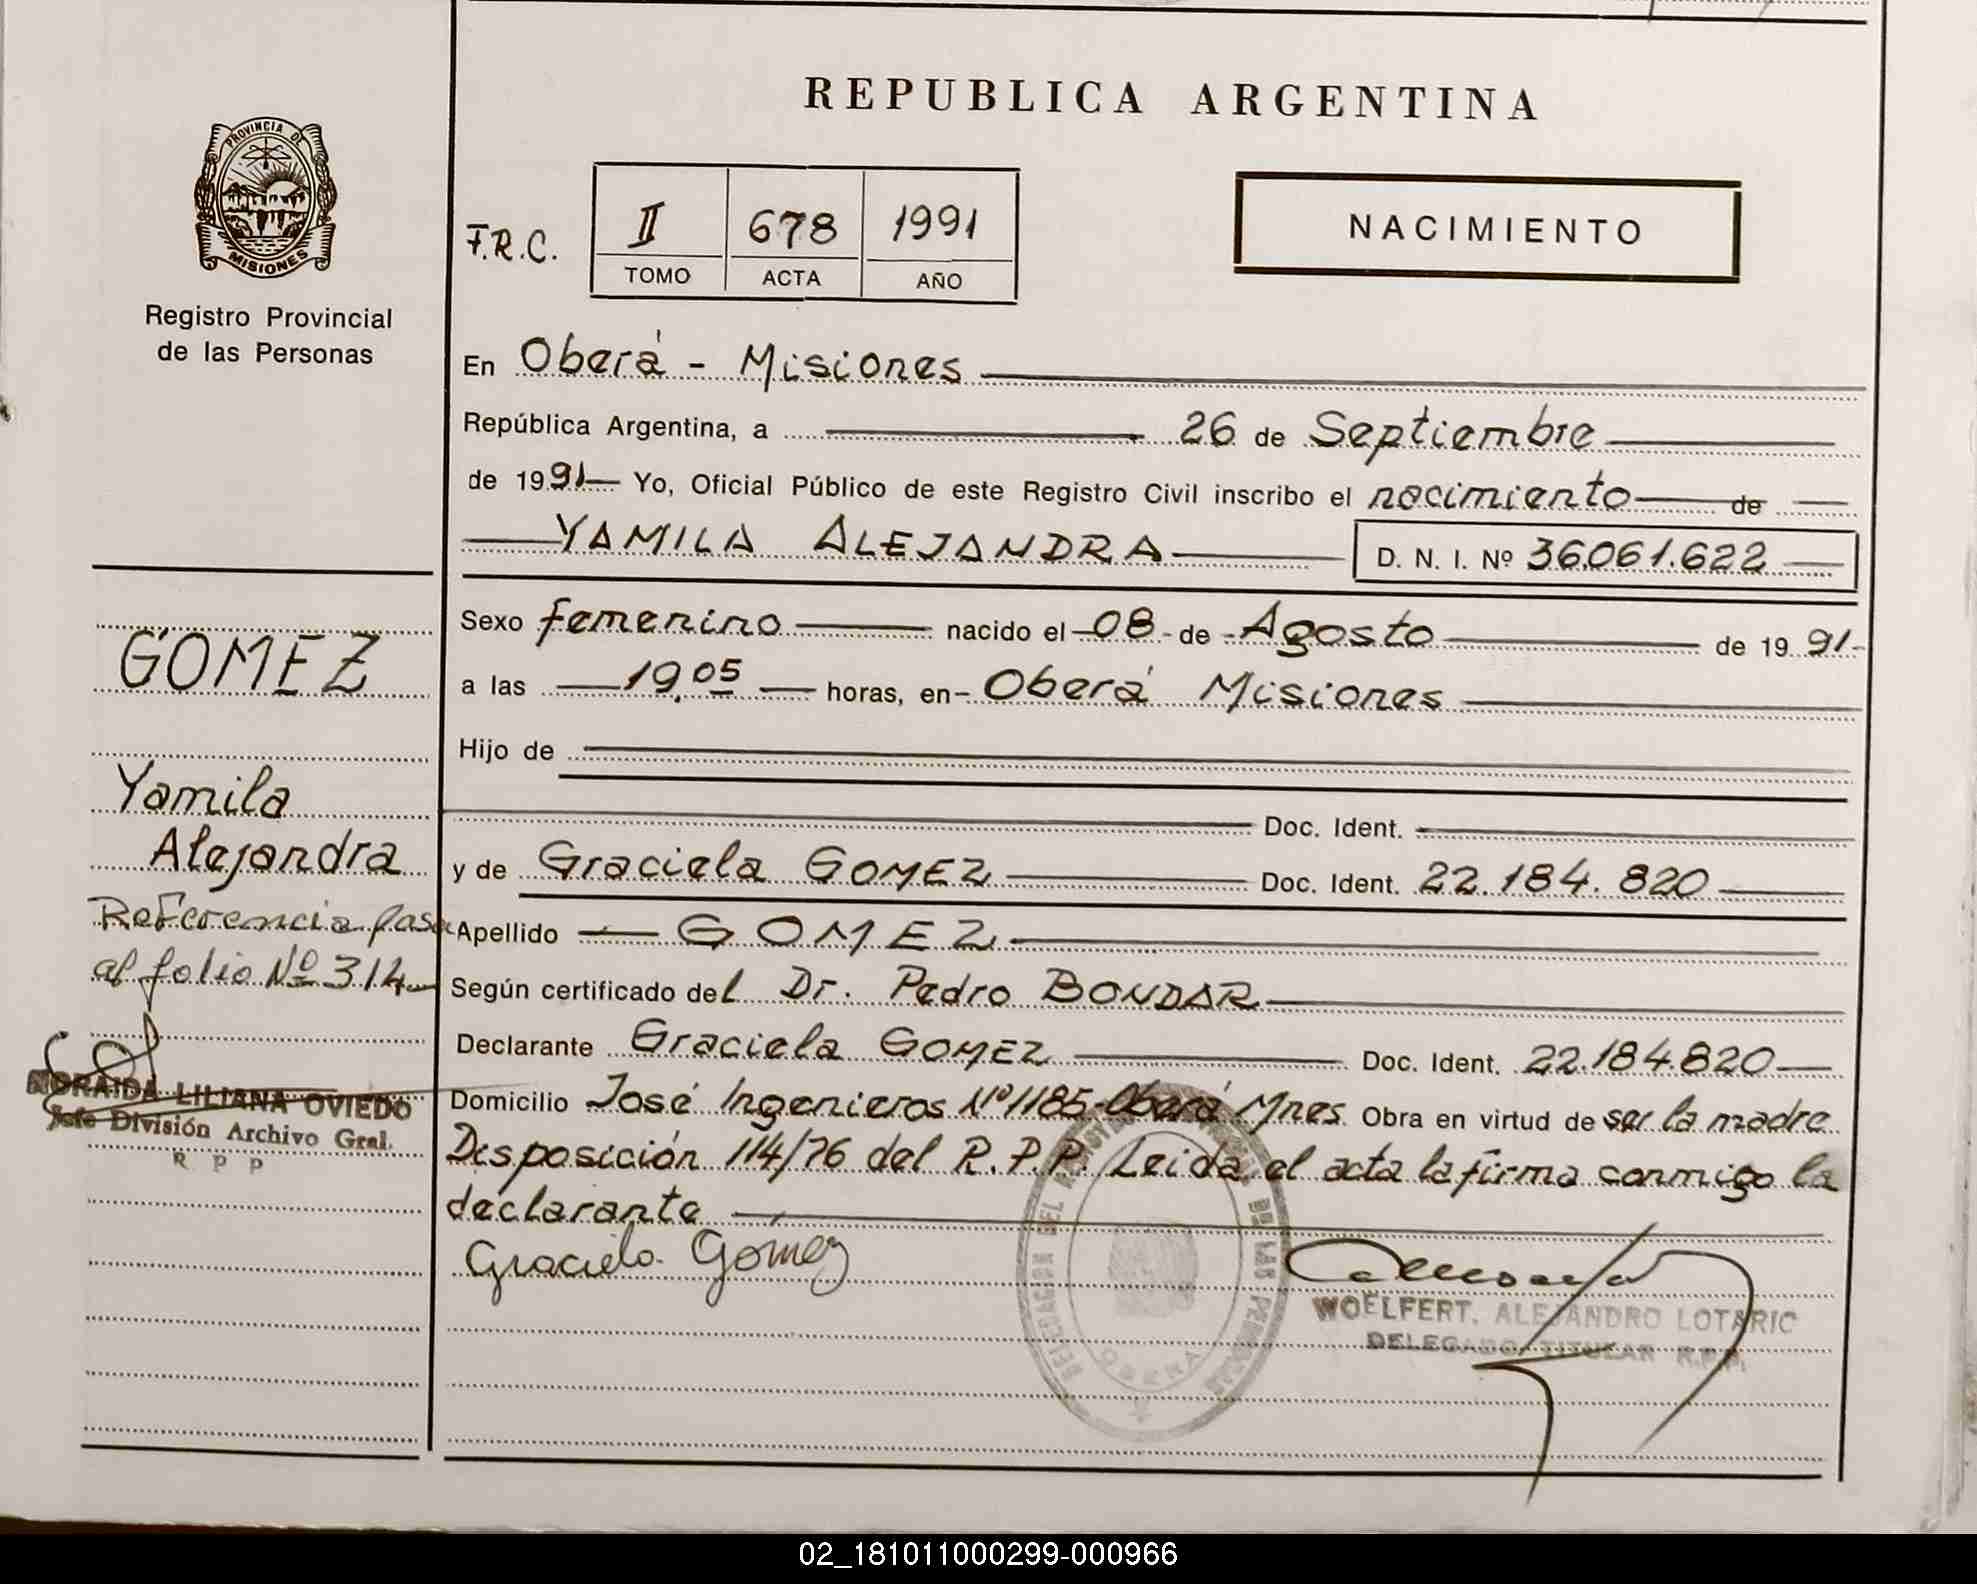 REPUBLICA ARGENTINA
PROVINCIA DE
MISIONES
Registro Provincial
de las Personas
F.R.C.
II 678 1991
TOMO ACTA AÑO
NACIMIENTO
En Oberá - Misiones
República Argentina, a 26 de Septiembre
de 1991 Yo, Oficial Público de este Registro Civil inscribo el nacimiento de
YAMILA ALEJANDRA D. N. I. Nº 36.061.622
Sexo femenino nacido el 08 de Agosto de 1991
a las 19,05 horas, en Oberá Misiones
Hijo de
Doc. Ident.
y de Graciela GOMEZ Doc. Ident. 22.184.820
Apellido GOMEZ
Según certificado del Dr. Pedro BONDAR
Declarante Graciela GOMEZ Doc. Ident. 22.184.820
Domicilio José Ingenieros Nº 1185-Oberá Mnes. Obra en virtud de ser la madre
Disposición 114/76 del R.P.P. Leida el acta la firma conmigo la
declarante
Graciela Gómez
GOMEZ
Yamila
Alejandra
Referencia pasa
al folio Nº 314
NORAIDA LILIANA OVIEDO
Jefe División Archivo Gral.
R P P
DELEGACION DEL REGISTRO PROVINCIAL DE LAS PERSONAS
OBERA
WOELFERT, ALEJANDRO LOTARIO
DELEGADO TITULAR R.P.P.
02_181011000299-000966